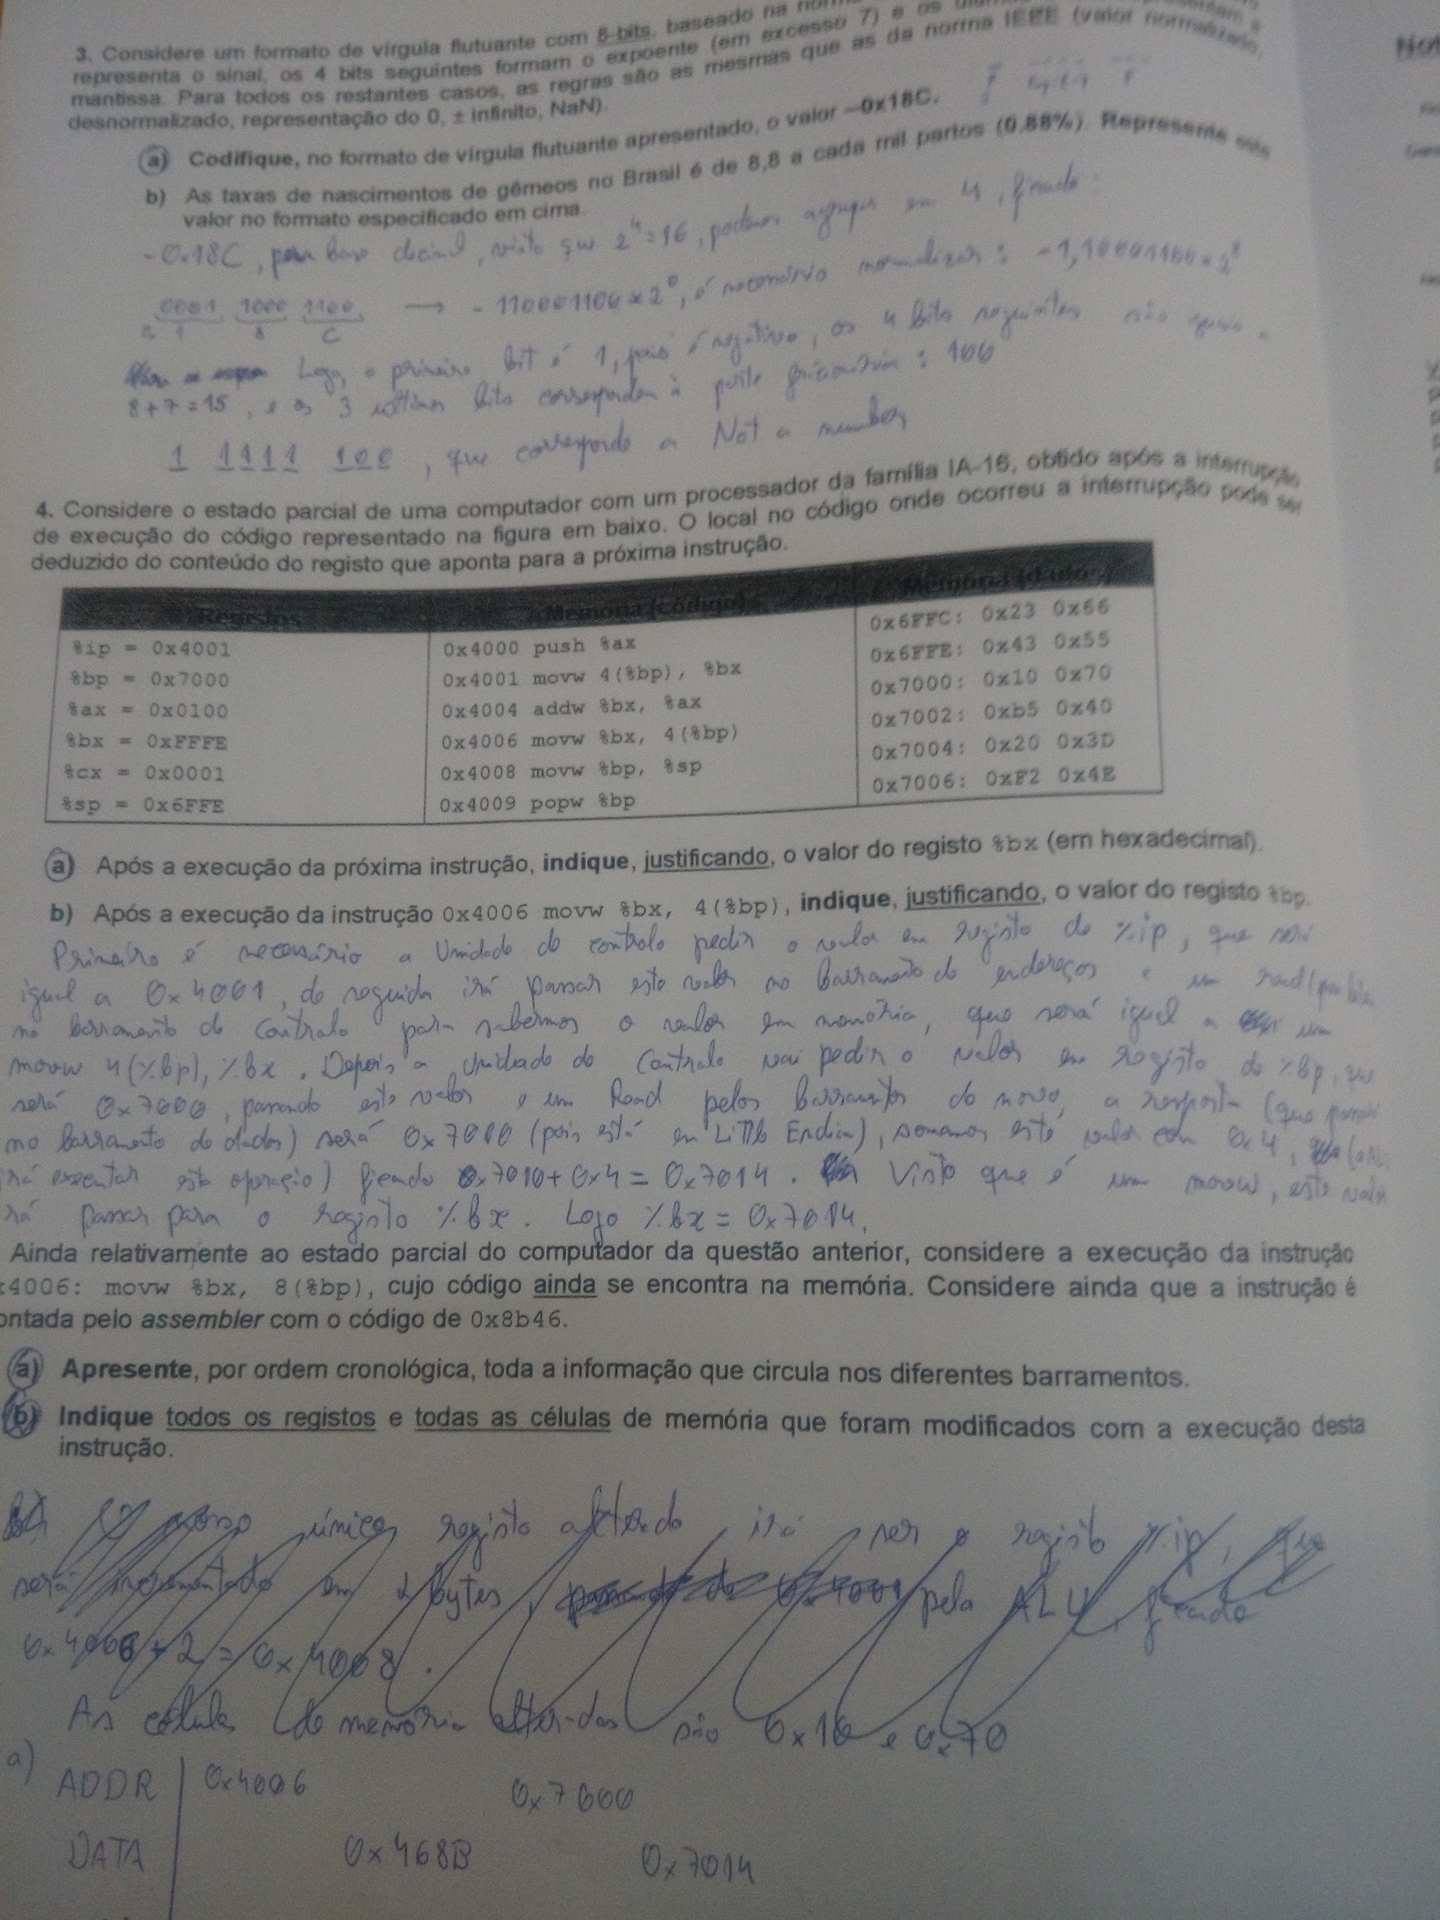 3. Considere um formato de vírgula flutuante com 8-bits, baseado na
representa o sinal, os 4 bits seguintes formam o expoente (em excesso 7) e os
mantissa. Para todos os restantes casos, as regras são as mesmas que as da norma IEEE (valor normalizado,
desnormalizado, representação do 0, ± infinito, NaN).
a) Codifique, no formato de vírgula flutuante apresentado, o valor –0x18C.
b) As taxas de nascimentos de gémeos no Brasil é de 8,8 a cada mil partos (0,88%). Represente este
valor no formato especificado em cima.
-0x18C, para base decimal, visto que 2^4=16, podemos agrupar em 4, ficando:
0001 1000 1100 → - 110001100 × 2^0, é necessário normalizar: -1,10001100 × 2^8
1 8 C
Logo, o primeiro bit é 1, pois é negativo, os 4 bits seguintes são
8+7=15, e os 3 últimos bits correspondem à parte fracionária: 100
1 1111 100, que corresponde a Not a number
4. Considere o estado parcial de uma computador com um processador da família IA-16, obtido após a interrupção
de execução do código representado na figura em baixo. O local no código onde ocorreu a interrupção pode ser
deduzido do conteúdo do registo que aponta para a próxima instrução.
Registos Memória (código) Memória (dados)
%ip = 0x4001
%bp = 0x7000
%ax = 0x0100
%bx = 0xFFFE
%cx = 0x0001
%sp = 0x6FFE
0x4000 push %ax
0x4001 movw 4(%bp), %bx
0x4004 addw %bx, %ax
0x4006 movw %bx, 4(%bp)
0x4008 movw %bp, %sp
0x4009 popw %bp
0x6FFC: 0x23 0x66
0x6FFE: 0x43 0x55
0x7000: 0x10 0x70
0x7002: 0xb5 0x40
0x7004: 0x20 0x3D
0x7006: 0xF2 0x4E
a) Após a execução da próxima instrução, indique, justificando, o valor do registo %bx (em hexadecimal).
b) Após a execução da instrução 0x4006 movw %bx, 4(%bp), indique, justificando, o valor do registo %bp.
Primeiro é necessário a Unidade de controlo pedir o valor em registo do %ip, que será
igual a 0x4001, de seguida irá passar este valor no barramento de endereços e um read
no barramento de controlo para sabermos o valor em memória, que será igual a um
movw 4(%bp), %bx. Depois a Unidade de Controlo vai pedir o valor em registo do %bp, que
será 0x7000, passando este valor e um Read pelos barramentos de novo, a resposta (que
no barramento de dados) será 0x7010 (pois está em Little Endian), somamos este valor com 0x4,
irá executar esta operação) ficando 0x7010+0x4=0x7014. Visto que é um movw, este valor
irá passar para o registo %bx. Logo %bx = 0x7014.
Ainda relativamente ao estado parcial do computador da questão anterior, considere a execução da instrução
x4006: movw %bx, 8(%bp), cujo código ainda se encontra na memória. Considere ainda que a instrução é
ontada pelo assembler com o código de 0x8b46.
a) Apresente, por ordem cronológica, toda a informação que circula nos diferentes barramentos.
b) Indique todos os registos e todas as células de memória que foram modificados com a execução desta
instrução.
b) O nosso único registo alterado irá ser o registo %ip, que
será incrementado em 2 bytes, pela ALU, ficando
0x4006+2=0x4008.
As células de memória alteradas são 0x10 e 0x70
a)
ADDR 0x4006 0x7000
DATA 0x468B 0x7014